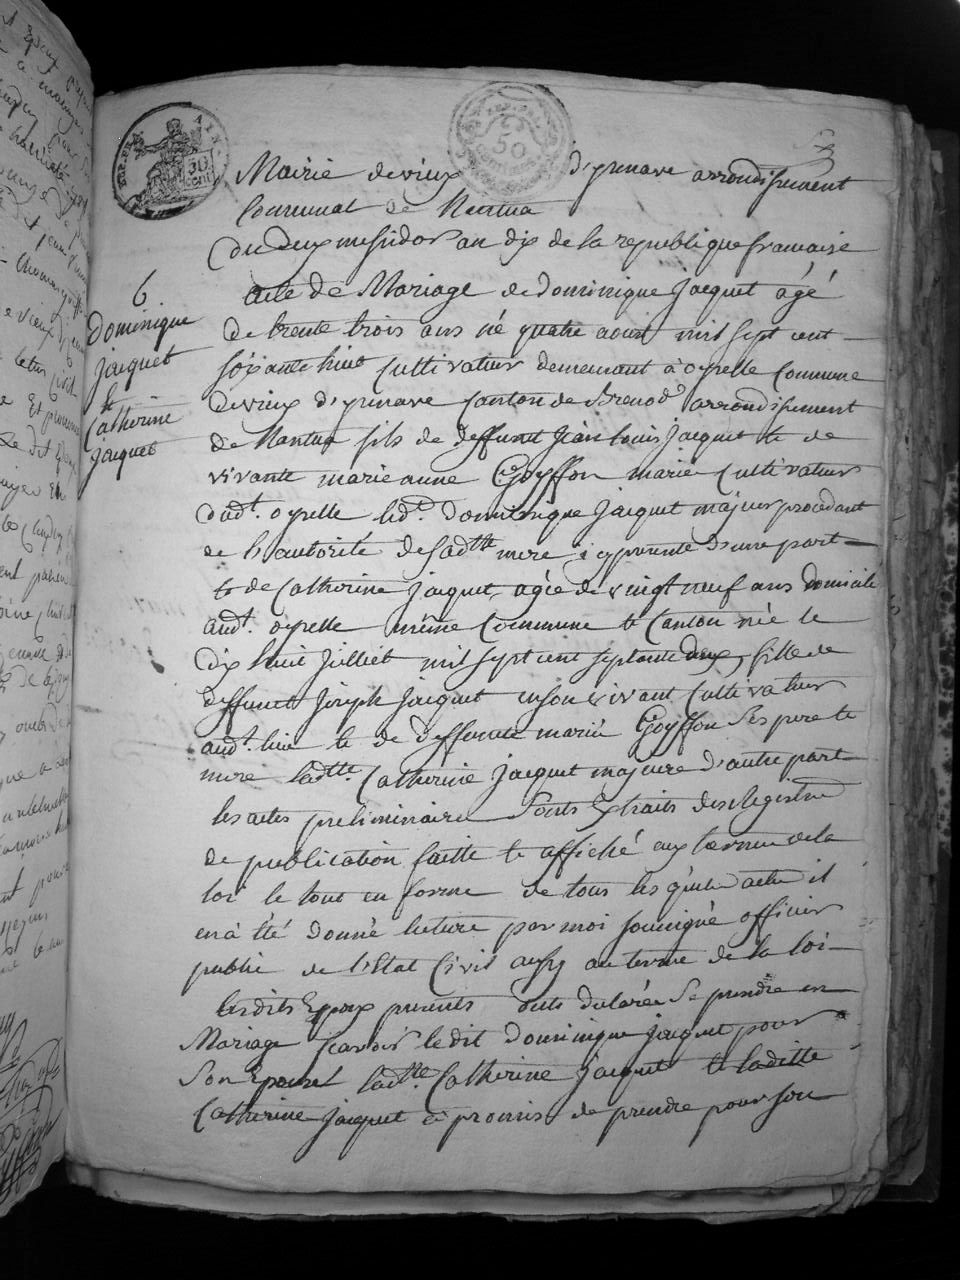 Mairie de vieux d'yzenave arrondissement
Communal de Nantua
Du deux messidor an dix de la republique francaise
6.
Dominique
Jacquet
&
Catherine
Jacquet
acte de Mariage de dominique Jacquet âgé
De trente trois ans né quatre aoust mil sept cent
soixante huit Cultivateur demeurant à oyselle Commune
De vieux d'yzenave Canton de Brenod arrondissement
de Nantua fils de deffunt Jean Louis Jacquet et de
vivante marie anne Goyffon mariée Cultivateur
dudt. oyselle ledt. Dominique Jacquet majeur procedant
de l'autorité de sadtte mere icy presente d'une part
et de Catherine Jacquet, agée de vingt neuf ans domicilé
audt. oyselle même Commune et Canton née le
dix huit Julliet mil sept cent septante deux, fille de
deffunct Joseph Jacquet en son vivant Cultivateur
audt. lieu et de deffuncte marie Goyffon ses pere et
mere ladtte Catherine Jacquet majeure d'autre part
les actes preliminaire sonts Extraits des Registre
de publication faitte et affiché aux termes de la
loi le tout en forme de tous les quels actes il
en à été donné lecture par moi soussigné officier
public de l'Etat Civil aussy au terme de la loi
lesdits Epoux presents onts declarés se prendre en
Mariage scavoir ledit Dominique Jacquet pour
son Epouse ladtte Catherine Jacquet et laditte
Catherine Jacquet à promis de prendre pour son